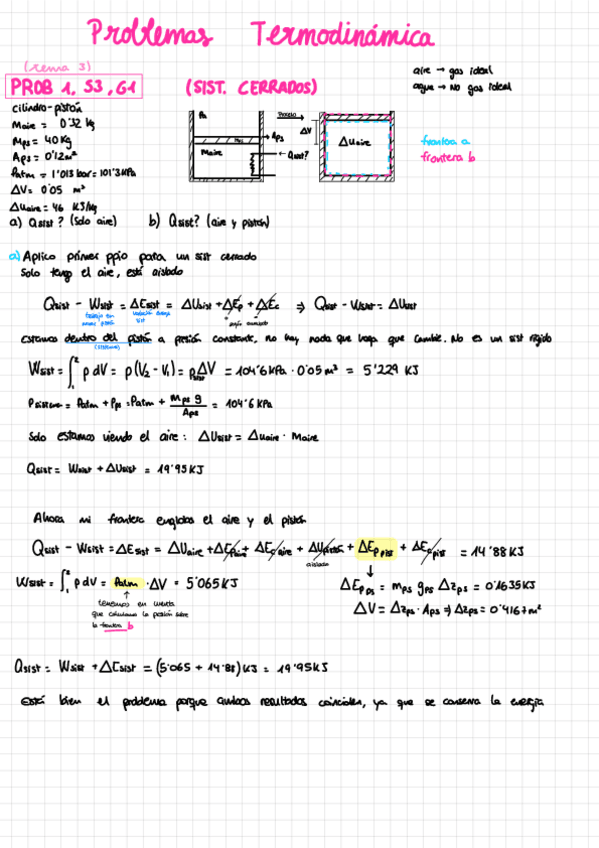 Problemas Termodinámica
(tema 3)
PROB 1, S3, G1 (SIST. CERRADOS)
aire → gas ideal
agua → NO gas ideal
cilindro-pistón
Maire = 0'32 kg
Mps = 40 Kg
Aps = 0'12 m²
Patm = 1'013 bar = 101'3 KPa
ΔV = 0'05 m³
Δuaire = 46 KJ/kg
a) Qsist? (solo aire) b) Qsist? (aire y pistón)
Pa
Mps
Maire
Aps
Qsist?
Proceso
ΔV
Δuaire
frontera a
frontera b
a) Aplico primer ppio para un sist cerrado
Solo tengo el aire, está aislado
Qsist - Wsist = ΔEsist = ΔUsist + ΔEp + ΔEc ⇒ Qsist - Wsist = ΔUsist
trabajo en
variación energ
sist
Estamos dentro del pistón a presión constante, no hay nada que haga que cambie. No es un sist rígido
(sistema)
Wsist = ∫₁² p dV = p (V2 - V1) = psist ΔV = 104'6 KPa · 0'05 m³ = 5'229 KJ
Psistema = Patm + Pps = Patm + Mps g / Aps = 104'6 KPa
Solo estamos viendo el aire: ΔUsist = Δuaire · Maire
Qsist = Wsist + ΔUsist = 19'95 KJ
Ahora mi frontera engloba el aire y el pistón
Qsist - Wsist = ΔEsist = ΔUaire + ΔEp aire + ΔEc aire + ΔUpistón + ΔEp pist + ΔEc pist = 14'88 KJ
aislado
Wsist = ∫₁² p dV = Patm · ΔV = 5'065 KJ
tenemos en cuenta
que calculamos la presión sobre
la frontera b
ΔEp ps = mps gps Δzps = 0'1635 KJ
ΔV = Δzps · Aps ⇒ Δzps = 0'4167 m²
Qsist = Wsist + ΔEsist = (5'065 + 14'88) KJ = 19'95 KJ
Está bien el problema porque ambos resultados coinciden, ya que se conserva la energía